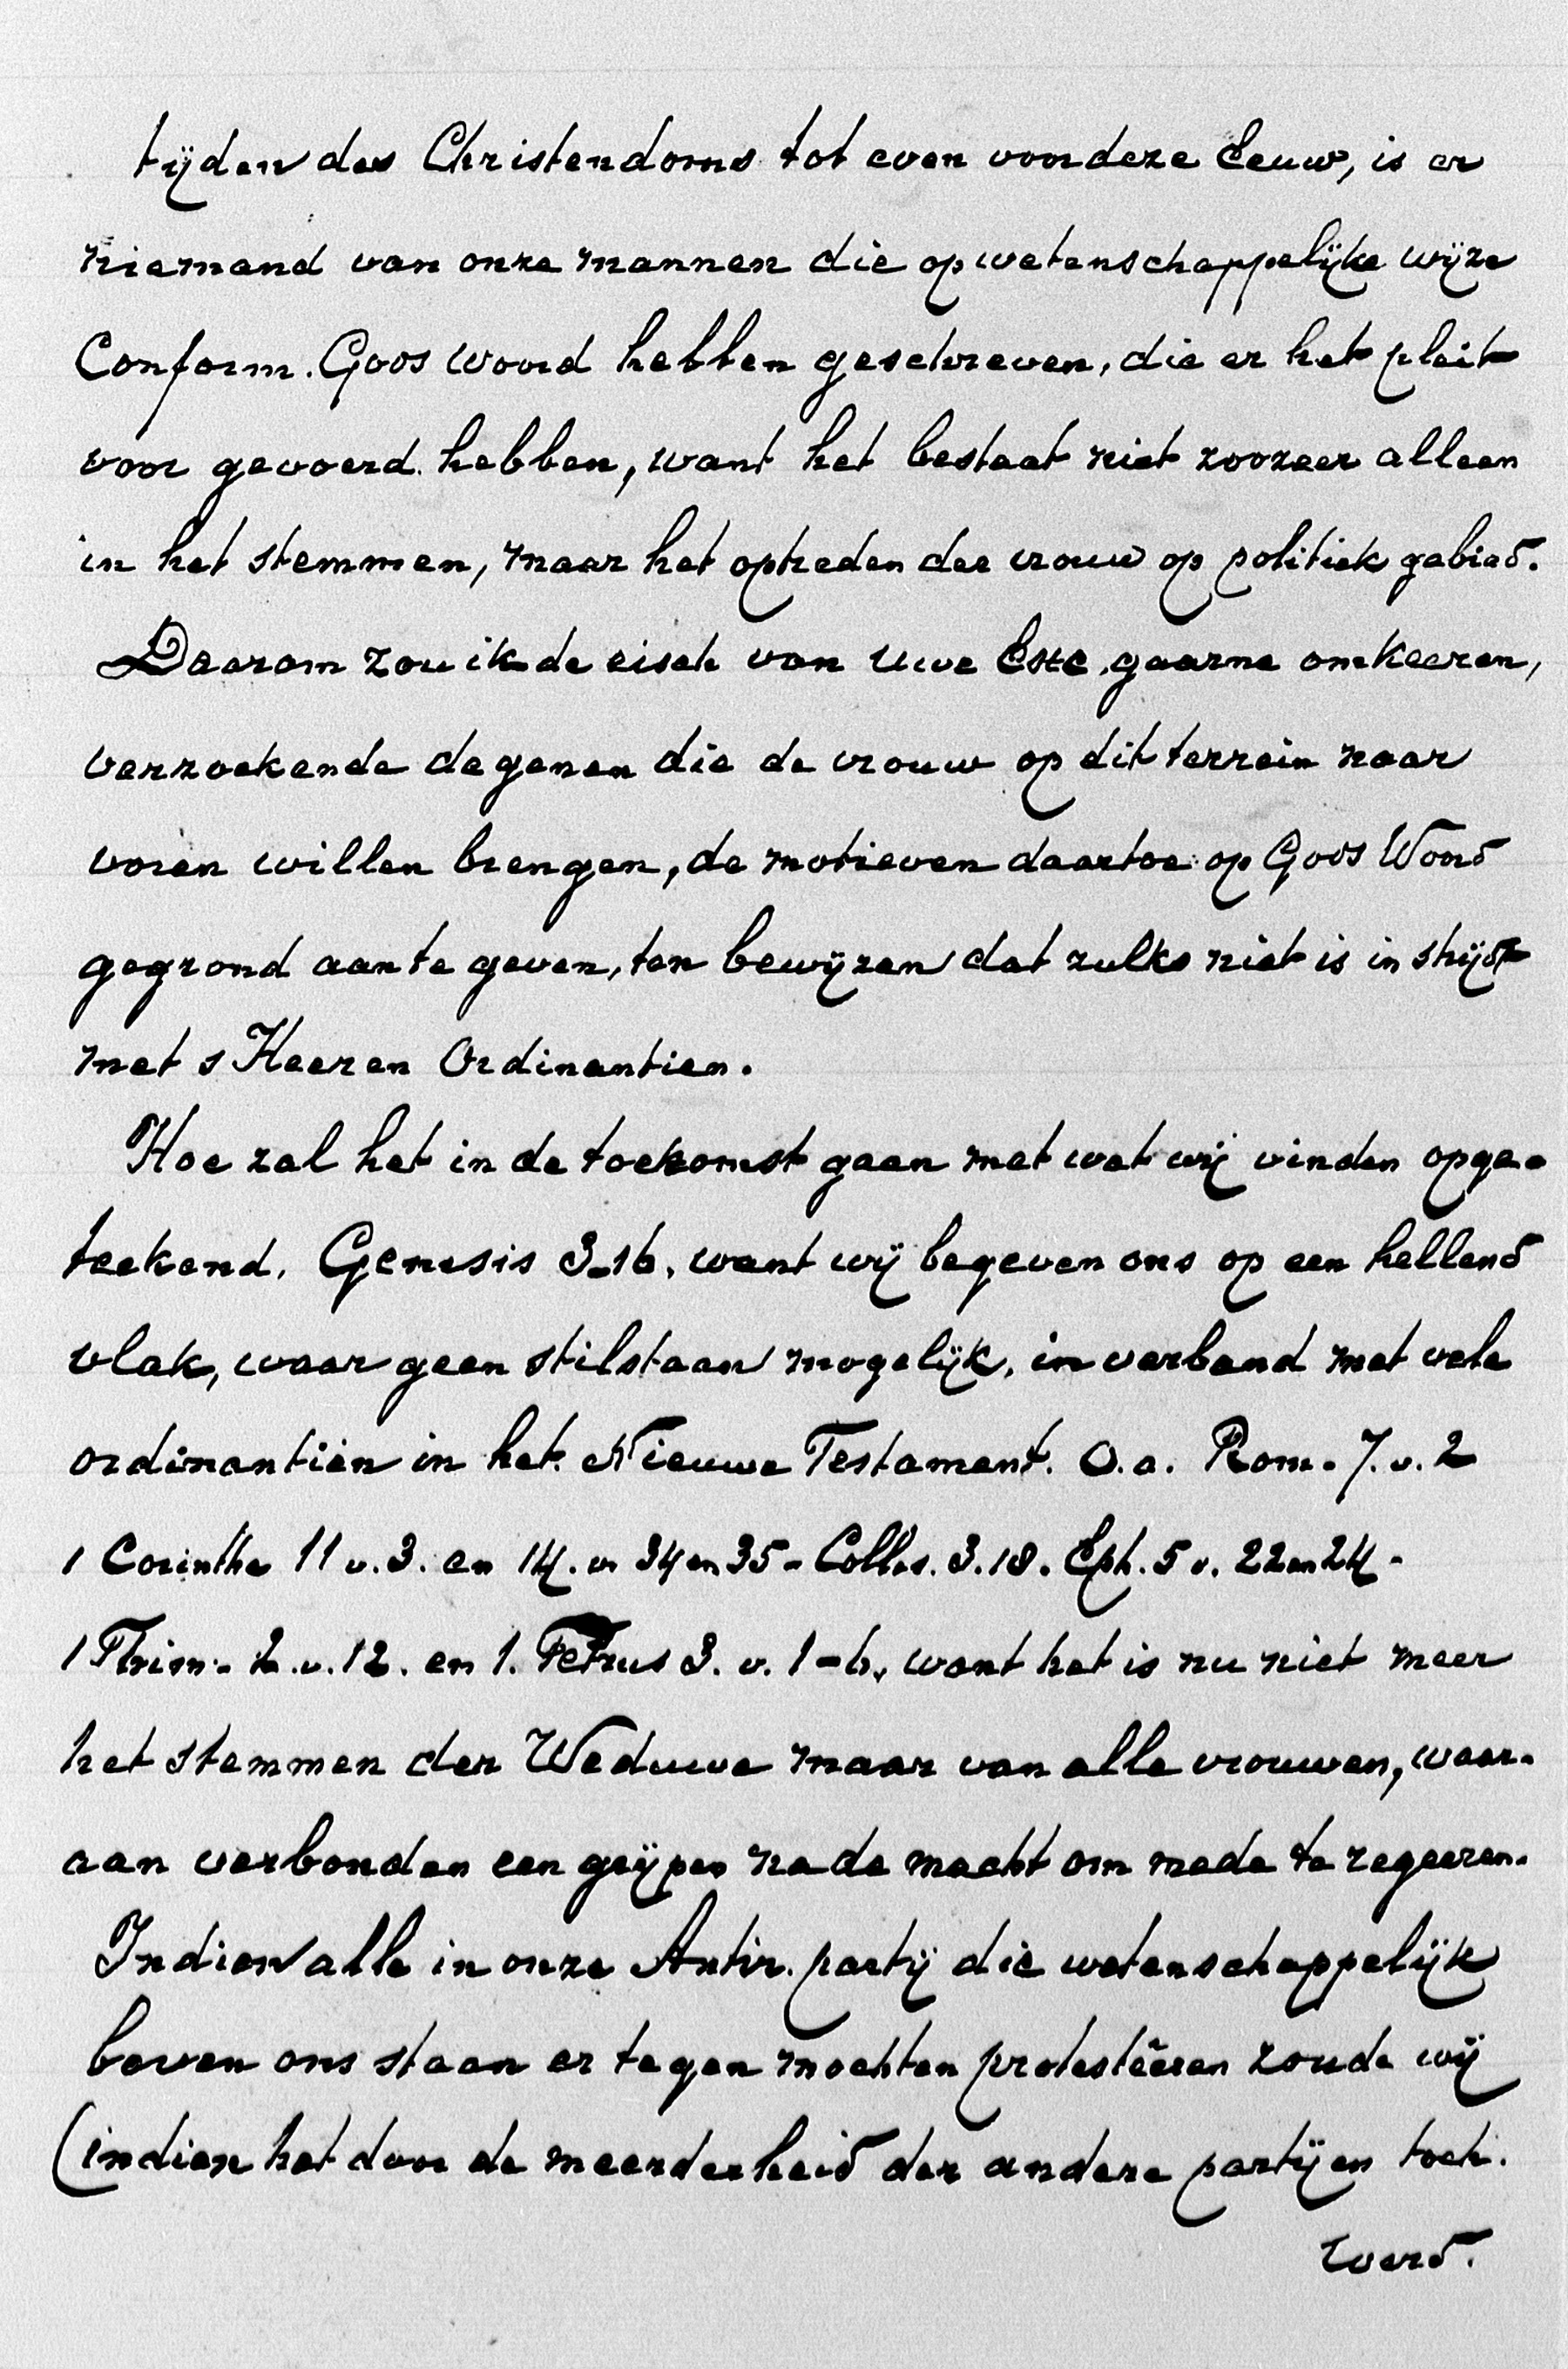 tijden des Christendoms tot even voor deze Eeuw, is er
niemand van onze mannen die op wetenschappelijke wijze
Conform. Gods woord hebben geschreven, die er het pleit
voor gevoerd hebben, want het bestaat niet zoozeer alleen
in het stemmen, maar het optreden der vrouw op politiek gebied.
Daarom zou ik de eisch van Uwe gaarne omkeeren,
verzoekende degenen die de vrouw op dit terrein naar
voren willen brengen, de motieven daartoe op Gods Woord
gegrond aan te geven, ten bewijzen dat zulks niet is in strijdt
met s Heeren Ordinantien.
Hoe zal het in de toekomst gaan met wat wij vinden opge-
teekend. Genesis 3-16. want wij begeven ons op een hellend
vlak, waar geen stilstaan mogelijk, in verband met vele
ordinantiën in het Nieuwe Testament. O.a. Rom. 7. v. 2
1 Corinthe 11 v. 3. en 14. v 34 en 35 - Collos. 3. 18. Eph. 5 v. 22 en 24 -
1 Thim. 2. v. 12. en 1. Petrus 3. v. 1-6, want het is nu niet meer
het stemmen der Weduwe maar van alle vrouwen, waar-
aan verbonden een grijpen na de macht om mede te regeeren.
Indien alle in onze Antir. partij die wetenschappelijk
boven ons staan er tegen mochten protestêeren zoude wij
(indien het door de meerderheid der andere partijen toch.
werd.